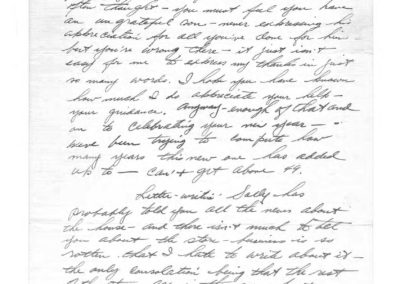 often thought - you must feel you have
an ungrateful son - never expressing his
appreciation for all you've done for him
but you're wrong there - it just isn't
easy for me to express my thanks in just
so many words. I hope you have known
how much I do appreciate your help -
your guidance. Anyway - enough of that and
on to celebrating your new year -
have been trying to compute how
many years this new one has added
up to - can't get above 49.
Letter-writin' Sally has
probably told you all the news about
the house - and there isn't much to tell
you about the store - business is so
rotten that I hate to write about it -
the only consolation being that the rest